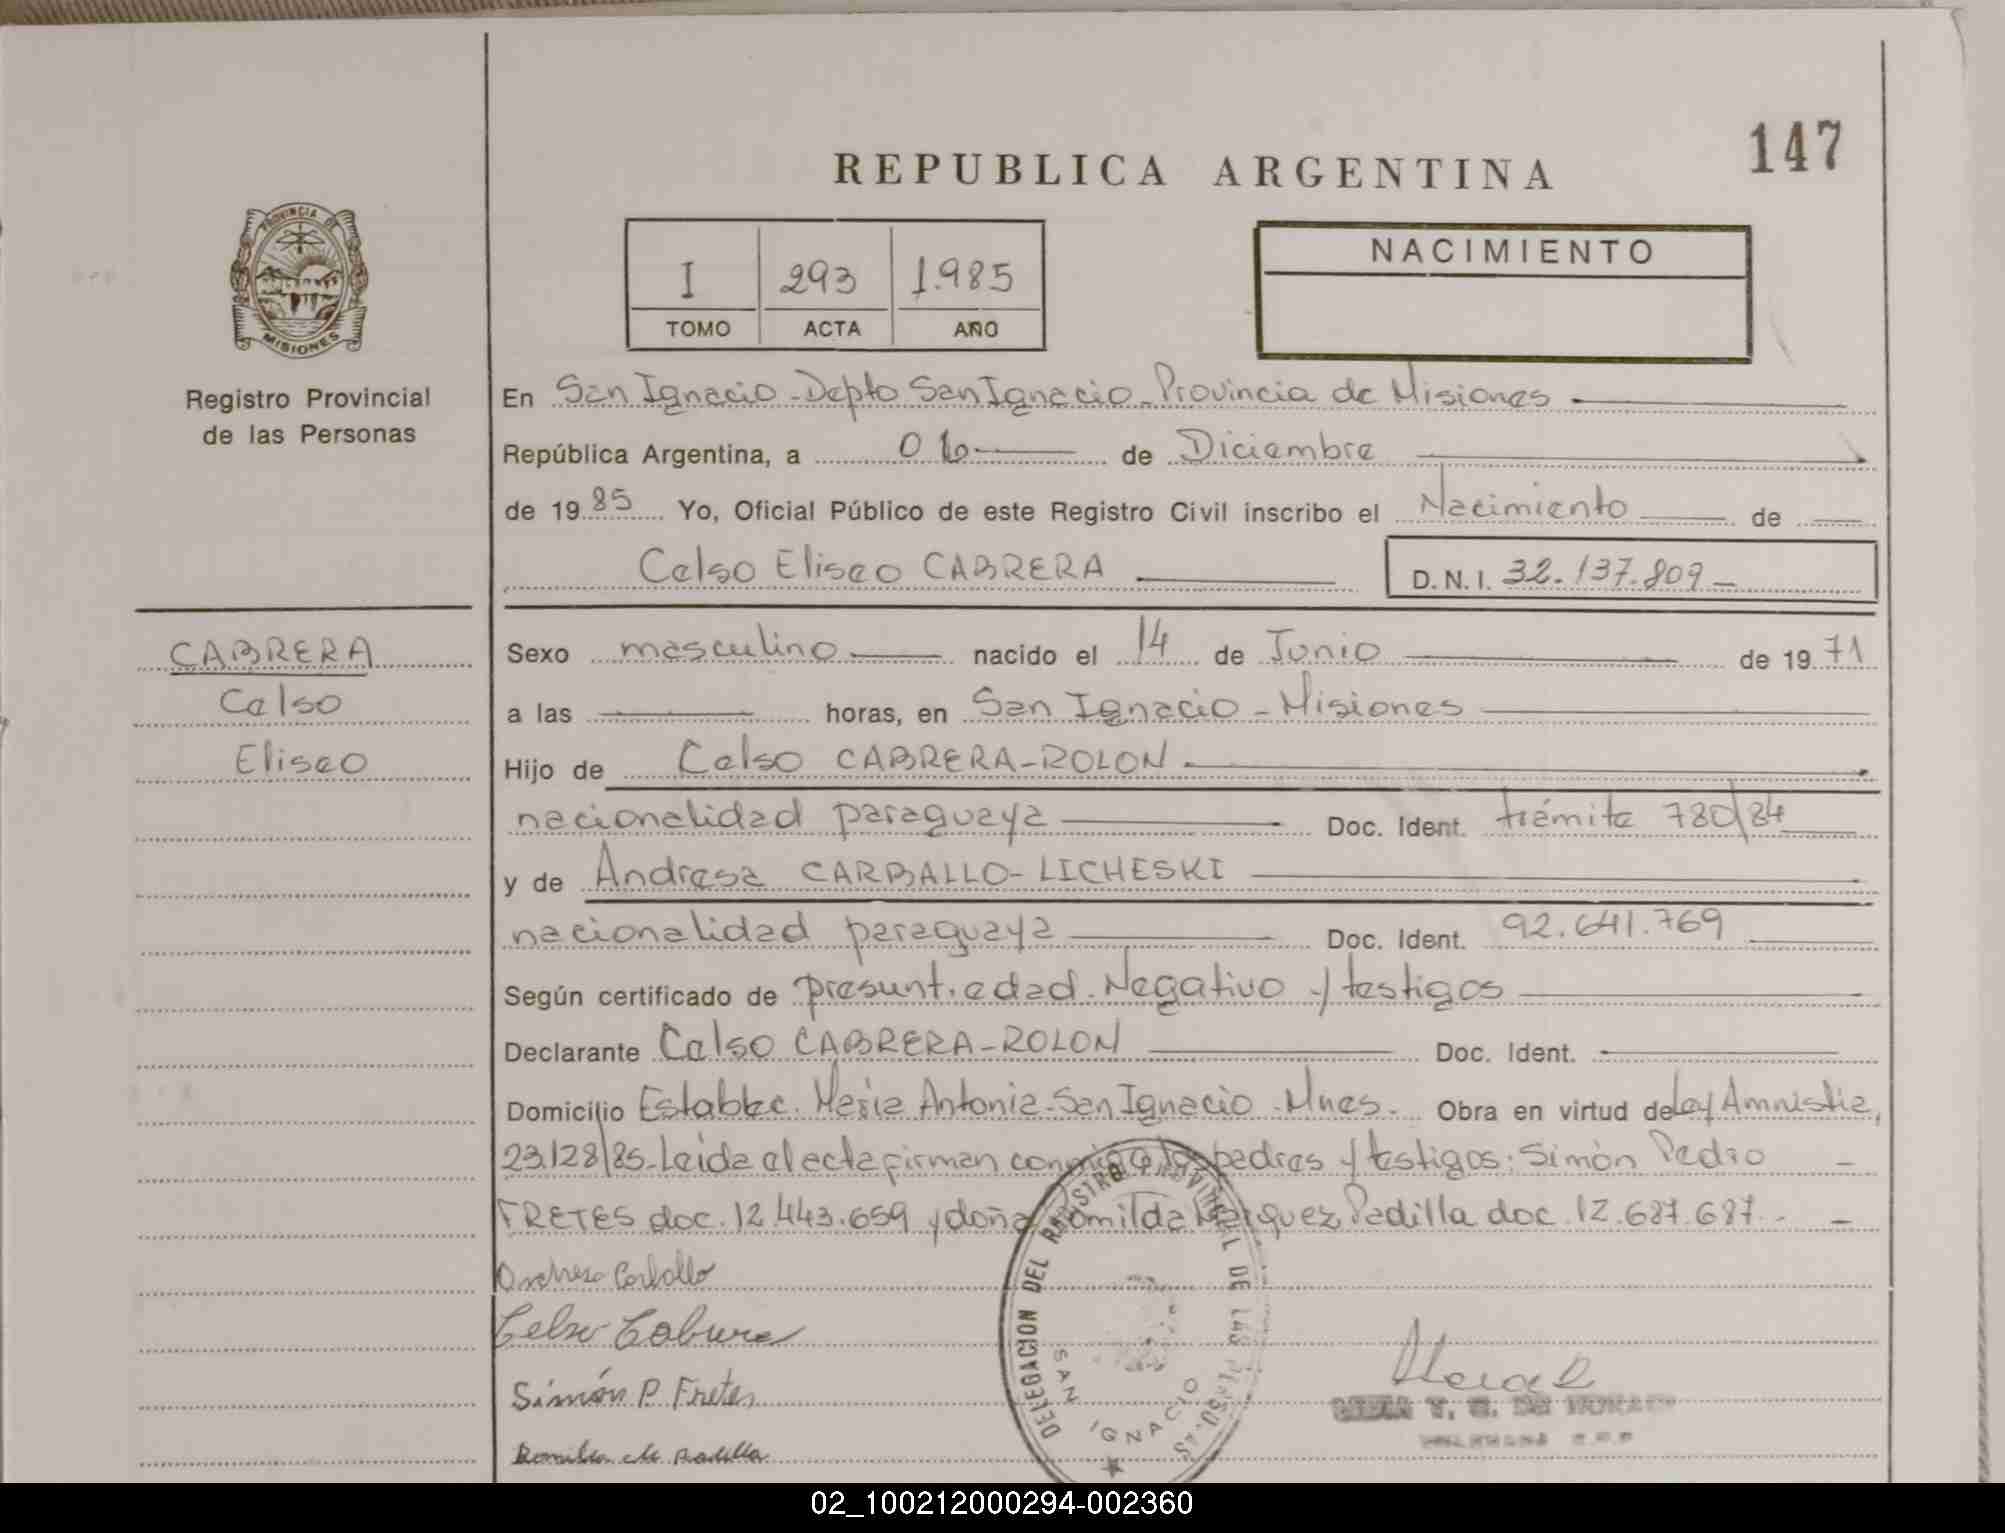 147
REPUBLICA ARGENTINA
PROVINCIA DE
MISIONES
Registro Provincial
de las Personas
I 293 1.985
TOMO ACTA AÑO
NACIMIENTO
En San Ignacio - Depto San Ignacio - Provincia de Misiones
República Argentina, a 06 de Diciembre
de 1985 Yo, Oficial Público de este Registro Civil inscribo el Nacimiento de
Celso Eliseo CABRERA D.N.I. 32.137.809
CABRERA
Celso
Eliseo
Sexo masculino nacido el 14 de Junio de 1971
a las horas, en San Ignacio - Misiones
Hijo de Celso CABRERA-ROLON
nacionalidad paraguaya Doc. Ident. trámite 780/84
y de Andresa CARBALLO-LICHESKI
nacionalidad paraguaya Doc. Ident. 92.641.769
Según certificado de presunt. edad. Negativo y testigos
Declarante Celso CABRERA-ROLON Doc. Ident.
Domicilio Establec. Maria Antonia - San Ignacio - Mnes. Obra en virtud de Ley Amnistia,
23.128/85 - Leida el acta firman conmigo los padres y testigos: Simón Pedro
FRETES doc. 12.443.659 y doña Romilda Marquez Padilla doc. 12.687.687.-
Andresa Carballo
Celso Cabrera
Simón P. Fretes
Romilda M. Padilla
DELEGACION DEL REGISTRO PROVINCIAL DE LAS PERSONAS
SAN IGNACIO
02_100212000294-002360